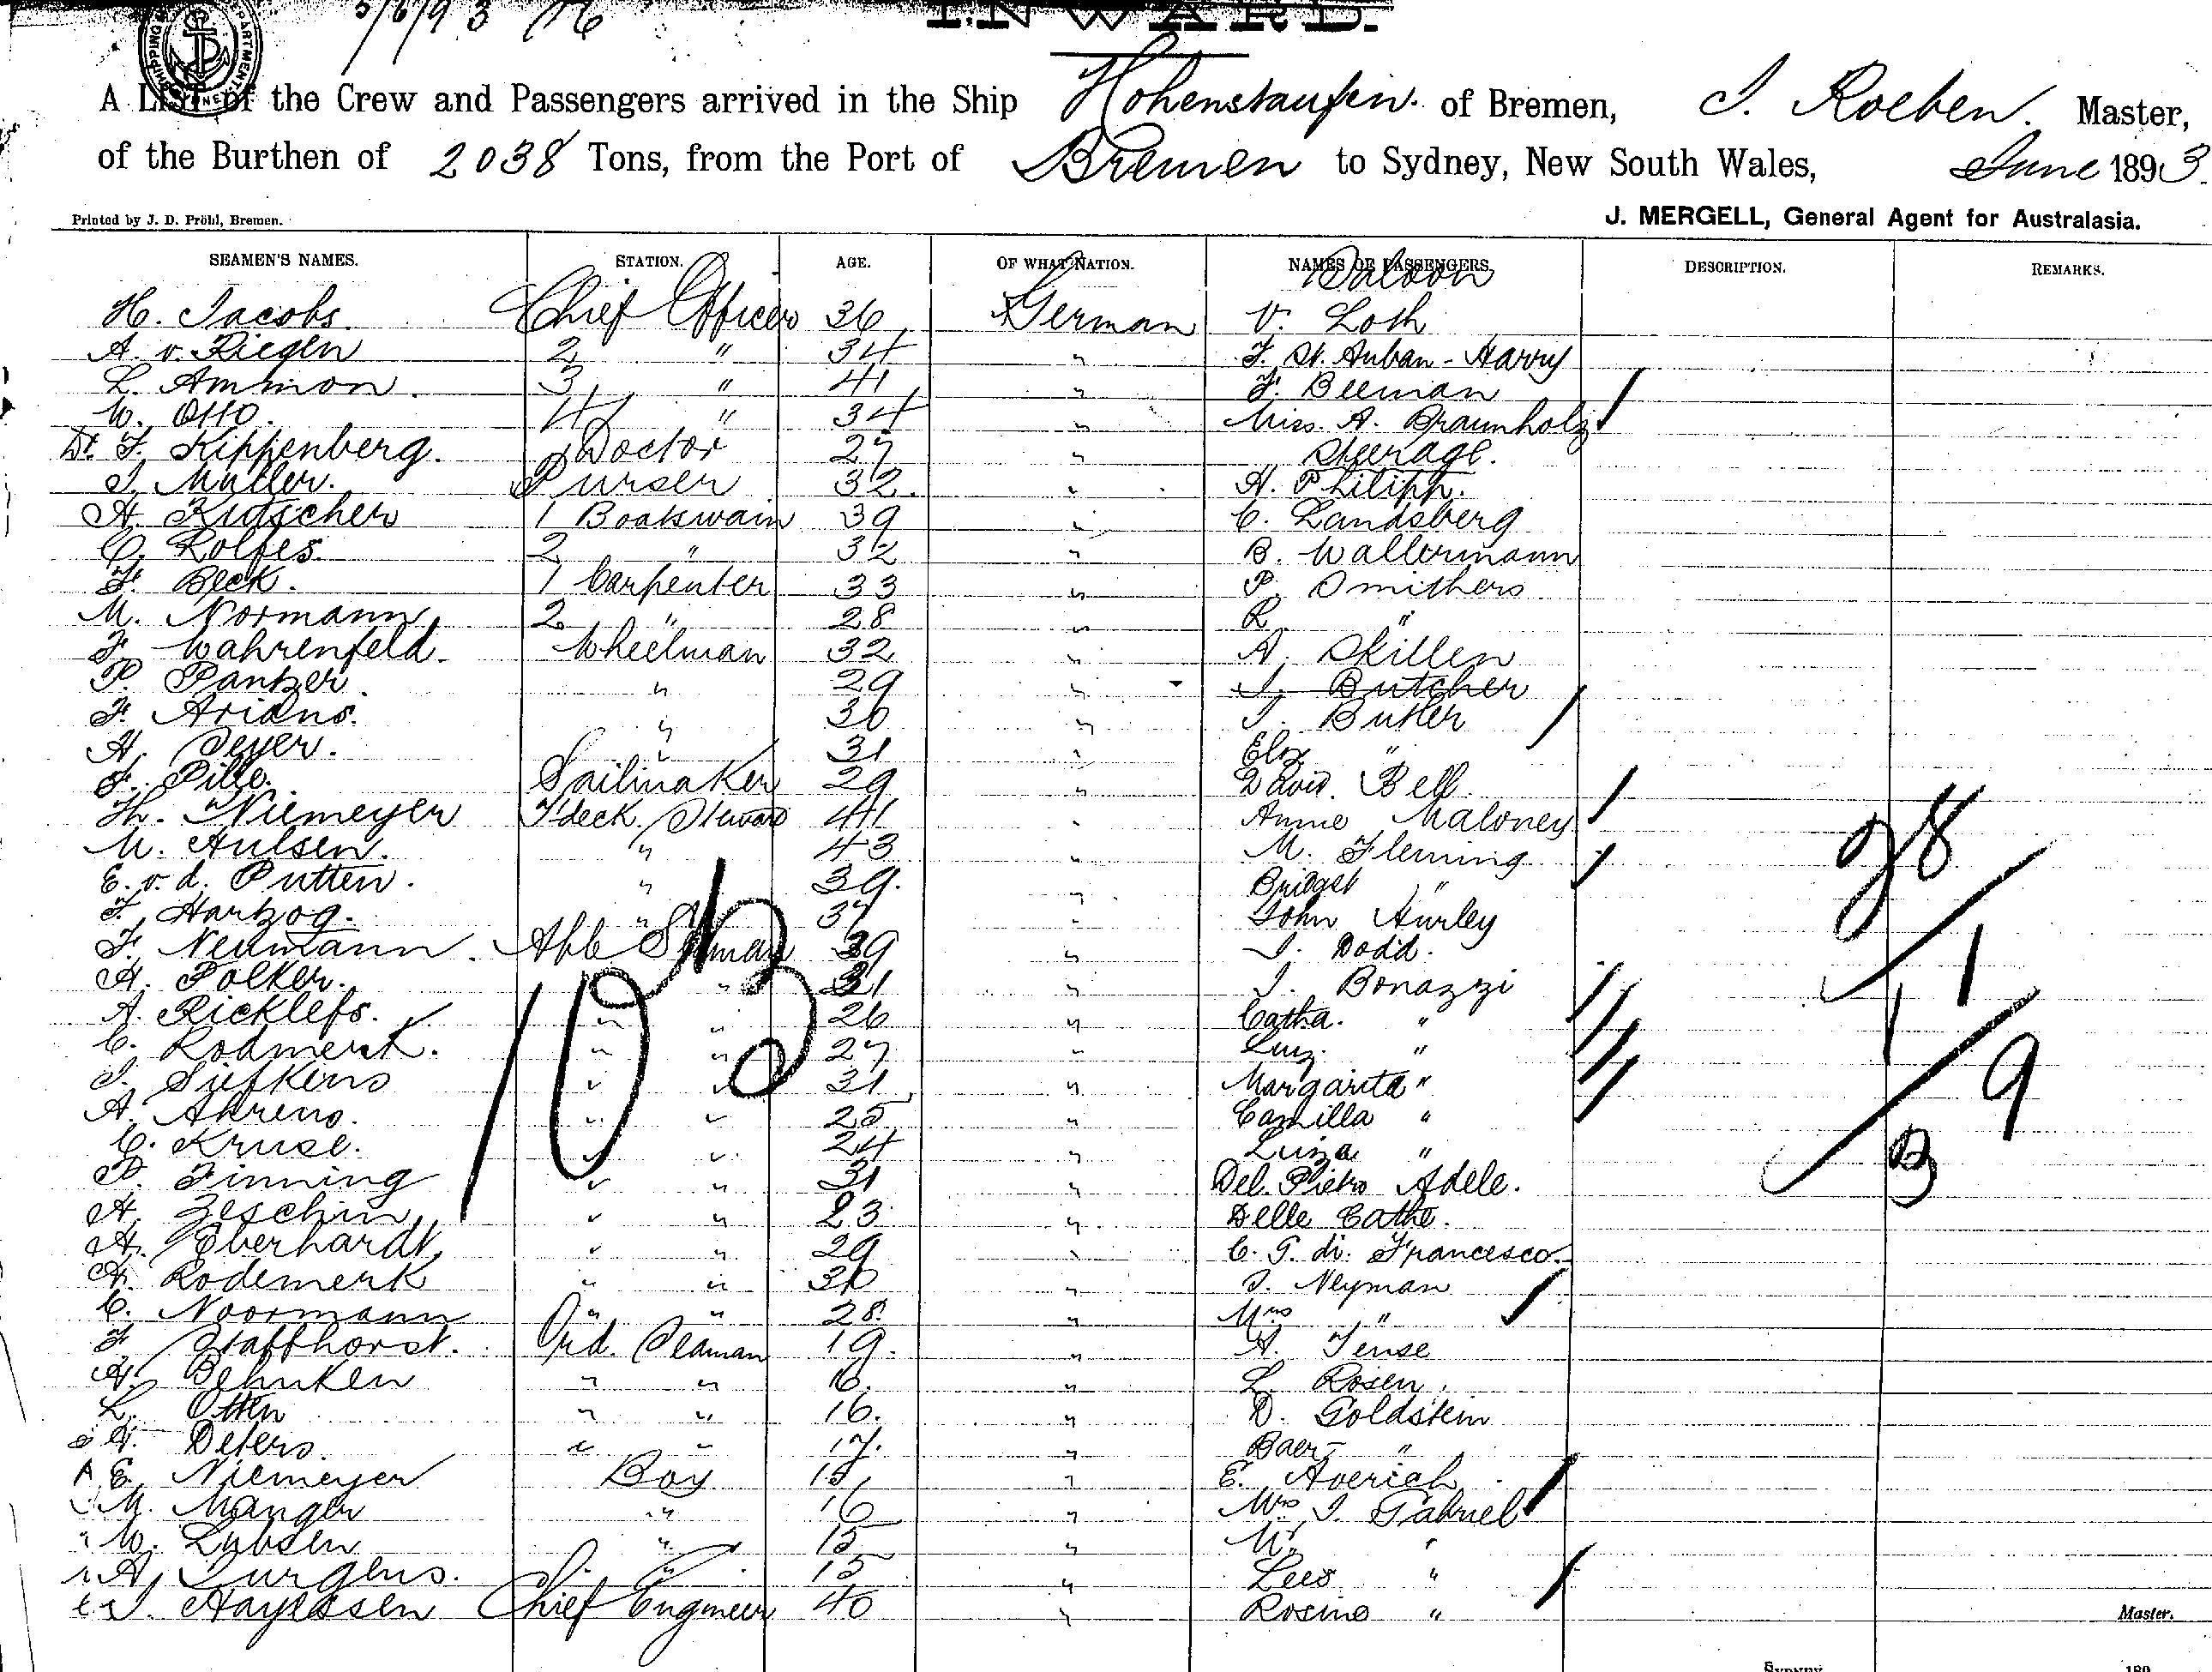 5/6/93
INWARD.
A LIST of the Crew and Passengers arrived in the Ship Hohenstaufen. of Bremen, J. Roeben. Master,
of the Burthen of 2038 Tons, from the Port of Bremen to Sydney, New South Wales, June 1893.
Printed by J. D. Pröhl, Bremen.
J. MERGELL, General Agent for Australasia.
SEAMEN'S NAMES. STATION. AGE. OF WHAT NATION. NAMES OF PASSENGERS. DESCRIPTION. REMARKS.
Saloon
H. Jacobs. Chief Officer 36 German V. Loth
A. v. Riegen 2 " 34 " F. St. Auban-Harry
L. Ammon. 3 " 41 " F. Beeman
W. Otto. 4 " 34 " Miss. A. Braunholz
Dr. F. Kippenberg. Doctor 27 " Steerage.
J. Müller. Purser 32. " H. Philipp.
A. Kutscher 1 Boatswain 39 " C. Landsberg
C. Rolfes. 2 " 32 " B. Wallermann
F. Beck. 1 Carpenter 33 " P. Smithers
M. Normann 2 " 28 " R. "
F. Wahrenfeld. Wheelman 32 " A. Skillen
P. Pantzer. " 29 " J. Butcher
F. Arians. " 30 " J. Butler
H. Seyer. " 31 " Eliz. "
F. Pille. Sailmaker 29 " David. Bell
Th. Niemeyer T'deck. Steward 41 " Annie Maloney
M. Hulsen. " 43 " M. Fleming
E. v. d. Putten. " 39. " Bridget "
F. Hartzog. " 37 " John Hurley
F. Neumann. Able Seaman 39 " J. Dodd.
A. Polker. " " 31 " J. Bonazzi
A. Ricklefs. " " 26 " Catha. "
C. Rodmerk. " " 27 " Luiz. "
J. Siefkens " " 31 " Margarita "
A. Ahrens. " " 25 " Camilla "
C. Kruse. " " 24 " Luiza "
D. Finning " " 31 " Del. Pietro Adele.
A. Zeschin " " 23 " Delle Catha.
A. Eberhardt " " 29 " C. G. di. Francesco.
A. Rodemerk " " 30 " J. Neyman
C. Noormann " " 28. " Mrs "
F. Staffhorst. Ord. Seaman 19. " A. Jense
H. Behnken " " 16. " L. Rosen.
L. Otten " " 16. " D. Goldstein
H. Deters. " " 17. " Baer "
E. Niemeyer Boy 15 " E. Averich
M. Manger " 16 " Mrs J. Gabriel
W. Lubsen " 15 " M. "
A. Jurgens. " 15 " Leeo "
J. Hayessen Chief Engineer 40 " Rosine "
103
98
1
1
9
B
Master.
SYDNEY 189